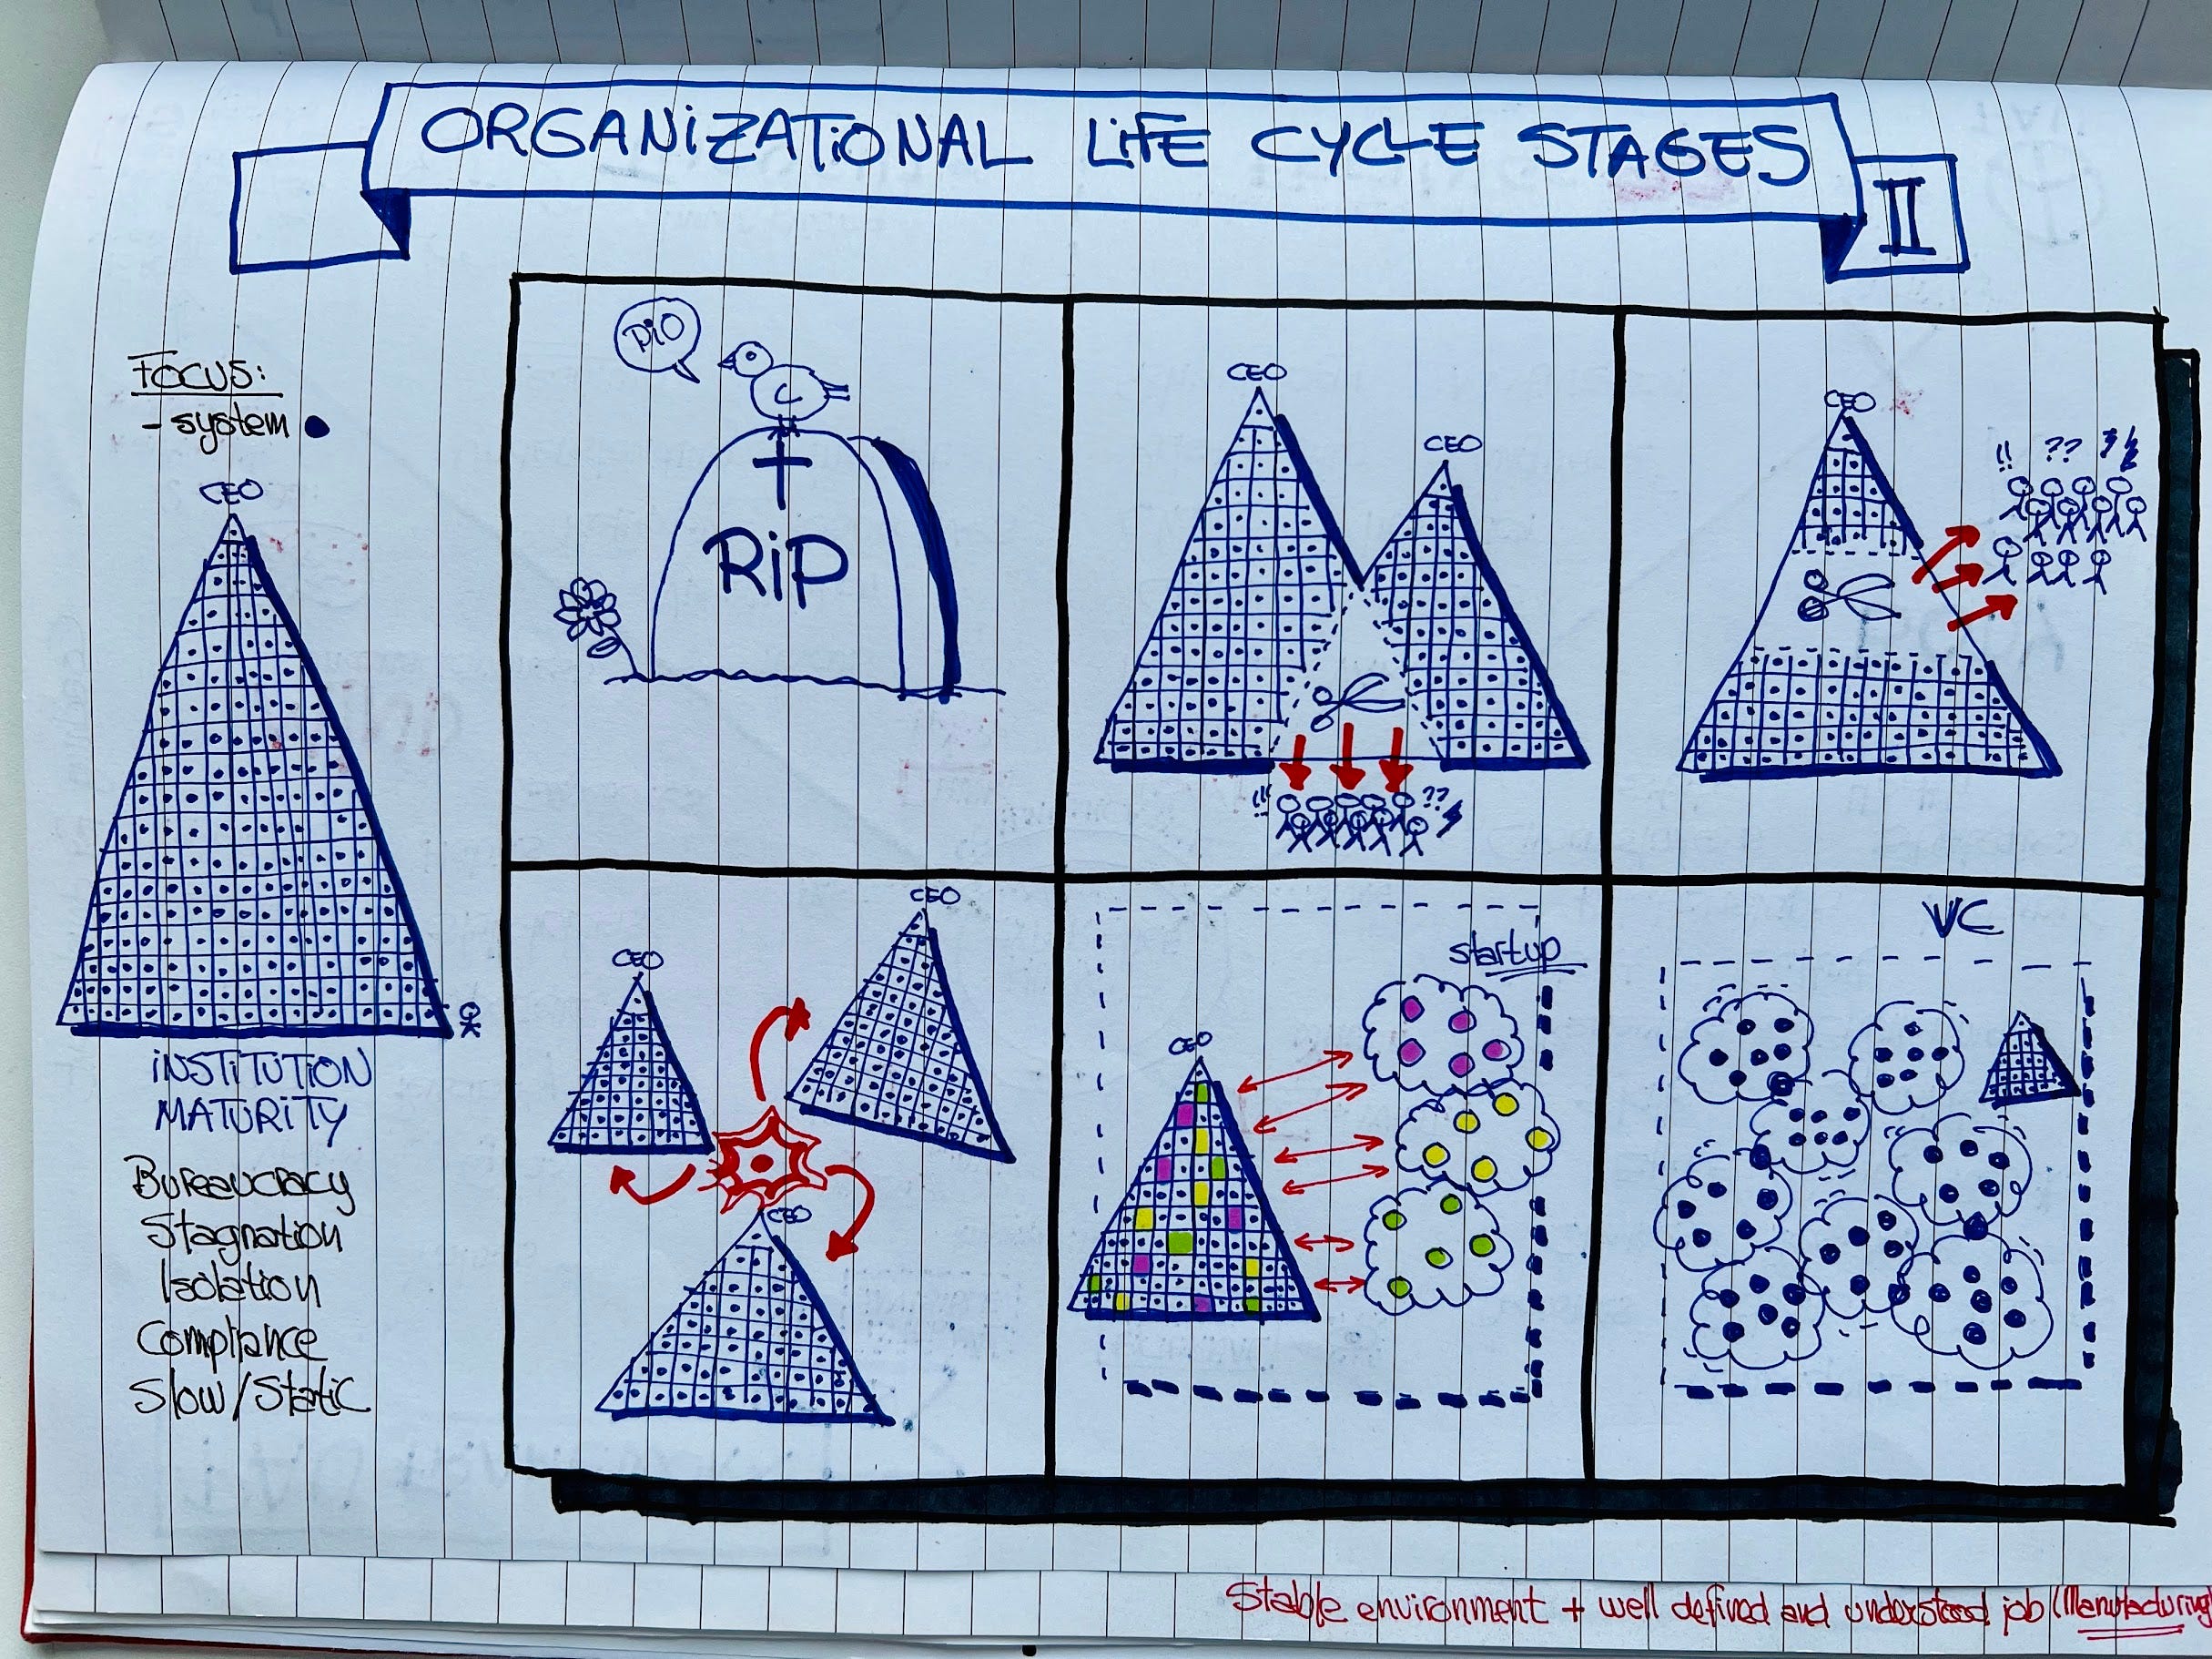 ORGANIZATIONAL LIFE CYCLE STAGES
II
Focus:
- system
CEO
INSTITUTION
MATURITY
Bureaucracy
Stagnation
Isolation
Compliance
Slow/Static
PiO
RiP
CEO
CEO
!!
??
CEO
!!
??
CEO
CEO
CEO
startup
CEO
VC
Stable environment + well defined and understood job (Manufacturing)